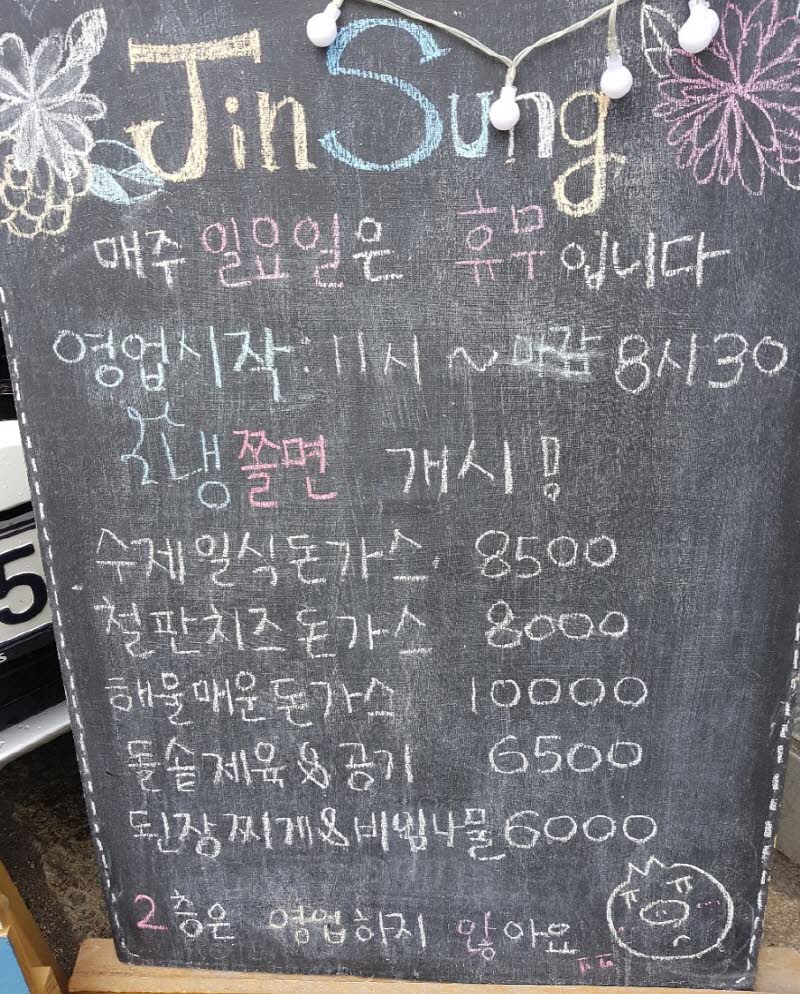 Jin Sung
매주 일요일은 휴무입니다
영업시작 : 11시 ~ 마감 8시30
물냉쫄면 개시!
수제일식돈가스 8500
철판치즈돈가스 8000
해물매운돈가스 10000
돌솥제육&공기 6500
된장찌개&비빔나물 6000
2층은 영업하지 않아요 ㅠㅠ
5